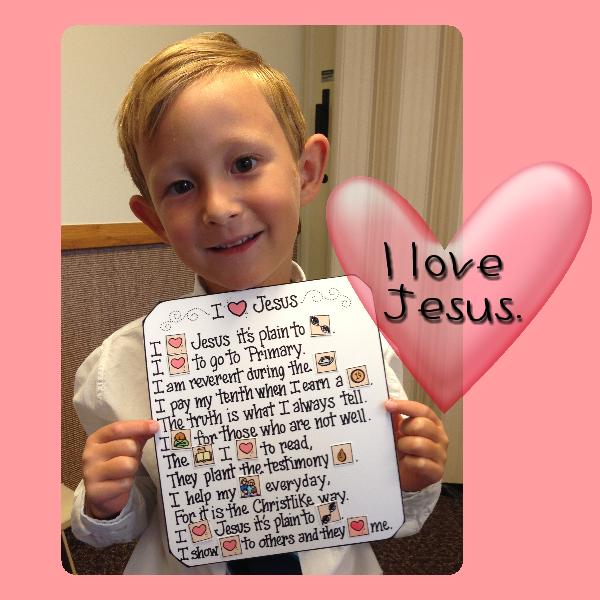 I Jesus
I Jesus it's plain to
I to go to Primary.
I am reverent during the
I pay my tenth when I earn a
The truth is what I always tell.
I for those who are not well.
The I to read,
They plant the testimony .
I help my everyday,
For it is the Christlike way.
I Jesus it's plain to
I show to others and they me.
I love
Jesus.